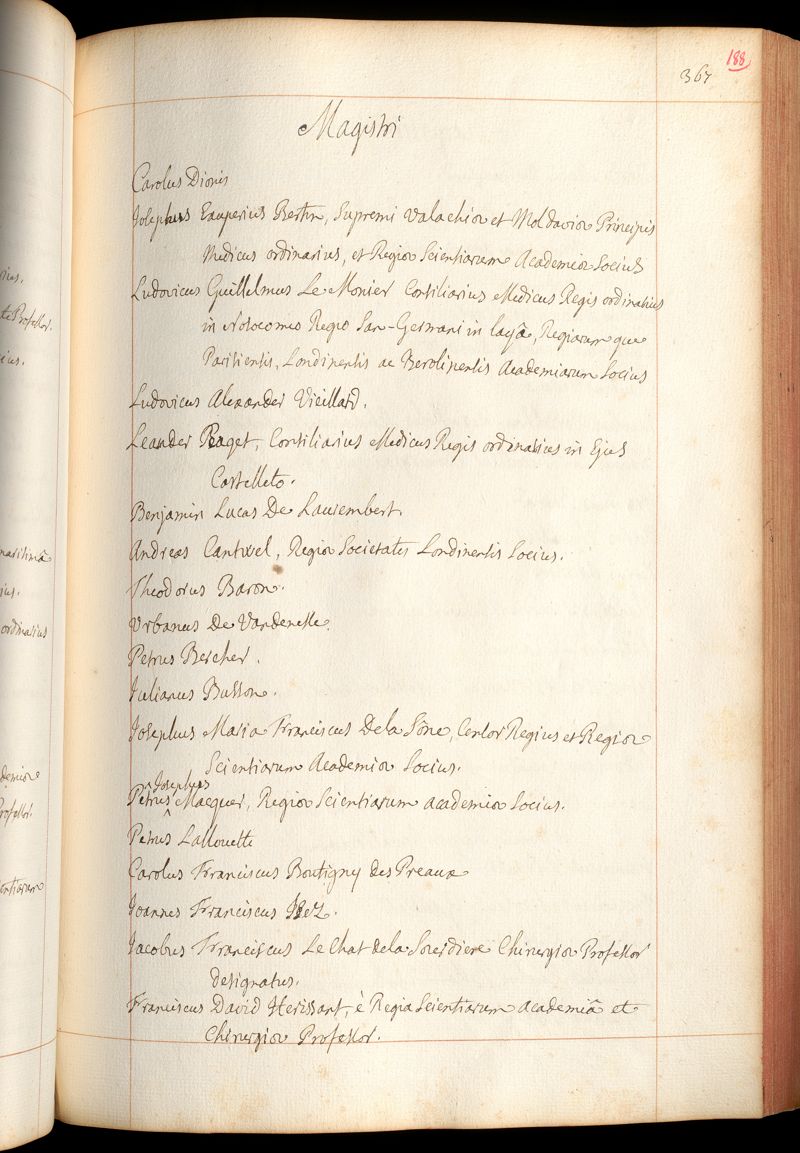 188
367
Magistri
Carolus Dionis
Josephus Exuperius Bertin, Supremi Valachiæ et Moldaviæ Principis
Medicus ordinarius, et Regiæ Scientiarum Academiæ Socius
Ludovicus Guillelmus Le Monier Consiliarius Medicus Regis ordinarius
in Nosocomio Regio San-Germani in layâ, Regiarum que
Parisiensis, Londinensis ac Berolinensis Academiarum Socius
Ludovicus Alexander Vieillard.
Leander Peaget, Consiliarius Medicus Regis ordinarius in Ejus
Castelleto.
Benjamin Lucas De Laurembert
Andreas Cantwel, Regiæ Societatis Londinensis Socius.
Theodorus Baron.
Urbanus De Vandenesse.
Petrus Bercher.
Julianus Busson.
Josephus Maria Franciscus Dela Sône, Censor Regius et Regiæ
Scientiarum Academiæ Socius.
Josephus
Petrus Macquer, Regiæ Scientiarum academiæ Socius.
Petrus Lallouette
Carolus Franciscus Boutigny des Preaux
Joannes Franciscus
Jacobus Franciscus Le Chat dela Sourdiere Chirurgiæ Professor
designatus.
Franciscus David Herissant, è Regia Scientiarum academiâ et
Chirurgiæ Professor.
naritimâ
ius.
ordinarius
demiæ
rofessor.
entiarum
te Professor.